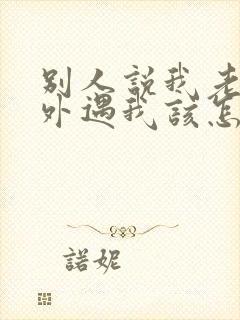 別人說我老
外遇我該怎
諾妮